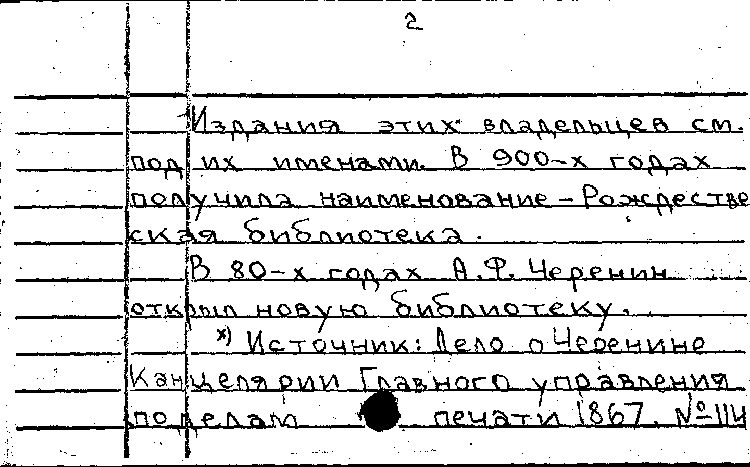 2
Издания этих владельцев см.
под их именами. В 900-х годах
получила наименование - Рождестве
ская библиотека.
В 80-х годах А.Ф. Черенин
открыл новую библиотеку.
х) Источник: Дело о Черенине
Канцелярии Главного управления
по делам печати 1867. № 114